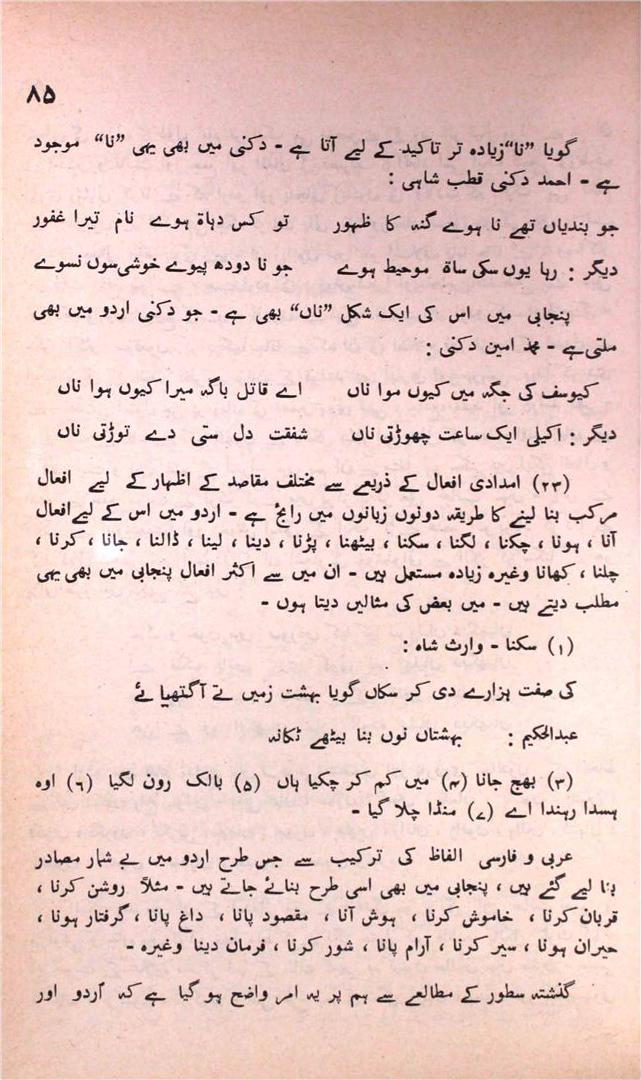 ۸۵
گویا ”نا“ زیادہ تر تاکید کے لیے آتا ہے - دکنی میں بھی یہی ”نا“ موجود
ہے - احمد دکنی قطب شاہی :
جو بندیاں تھے نا ہوے گنہ کا ظہور تو کس دہاۃ ہوے نام تیرا غفور
دیگر : رہا یوں سکی ساۃ موحیط ہوے جو نا دودھ پیوے خوشی سوں نسوے
پنجابی میں اس کی ایک شکل ”ناں“ بھی ہے - جو دکنی اردو میں بھی
ملتی ہے - محمد امین دکنی :
کیوسف کی جگہ میں کیوں موا ناں اے قاتل باگہ میرا کیوں ہوا ناں
دیگر : اکیلی ایک ساعت چھوڑتی ناں شفقت دل ستی دے توڑتی ناں
(۲۳) امدادی افعال کے ذریعے سے مختلف مقاصد کے اظہار کے لیے افعال
مرکب بنا لینے کا طریقہ دونوں زبانوں میں رایج ہے - اردو میں اس کے لیے افعال
آنا ، ہونا ، چکنا ، لگنا ، سکنا ، بیٹھنا ، پڑنا ، دینا ، لینا ، ڈالنا ، جانا ، کرنا ،
چلنا ، کھانا وغیرہ زیادہ مستعمل ہیں - ان میں سے اکثر افعال پنجابی میں بھی یہی
مطلب دیتے ہیں - میں بعض کی مثالیں دیتا ہوں -
(۱) سکنا - وارث شاہ :
کی صفت ہزارے دی کر سکاں گویا بہشت زمیں تے آگتھیا ئے
عبدالحکیم : بہشتاں نوں بنا بیٹھے ٹکانہ
(۳) بھج جانا (۴) میں کم کر چکیا ہاں (۵) بالک رون لگیا (۶) اوہ
ہسدا رہندا اے (۷) منڈا چلا گیا -
عربی و فارسی الفاظ کی ترکیب سے جس طرح اردو میں بے شمار مصادر
بنا لیے گئے ہیں ، پنجابی میں بھی اسی طرح بنائے جاتے ہیں - مثلاً روشن کرنا ،
قربان کرنا ، خاموش کرنا ، ہوش آنا ، مقصود پانا ، داغ پانا ، گرفتار ہونا ،
حیران ہونا ، سیر کرنا ، آرام پانا ، شور کرنا ، فرمان دینا وغیرہ -
گذشتہ سطور کے مطالعے سے ہم پر یہ امر واضح ہو گیا ہے کہ اُردو اور